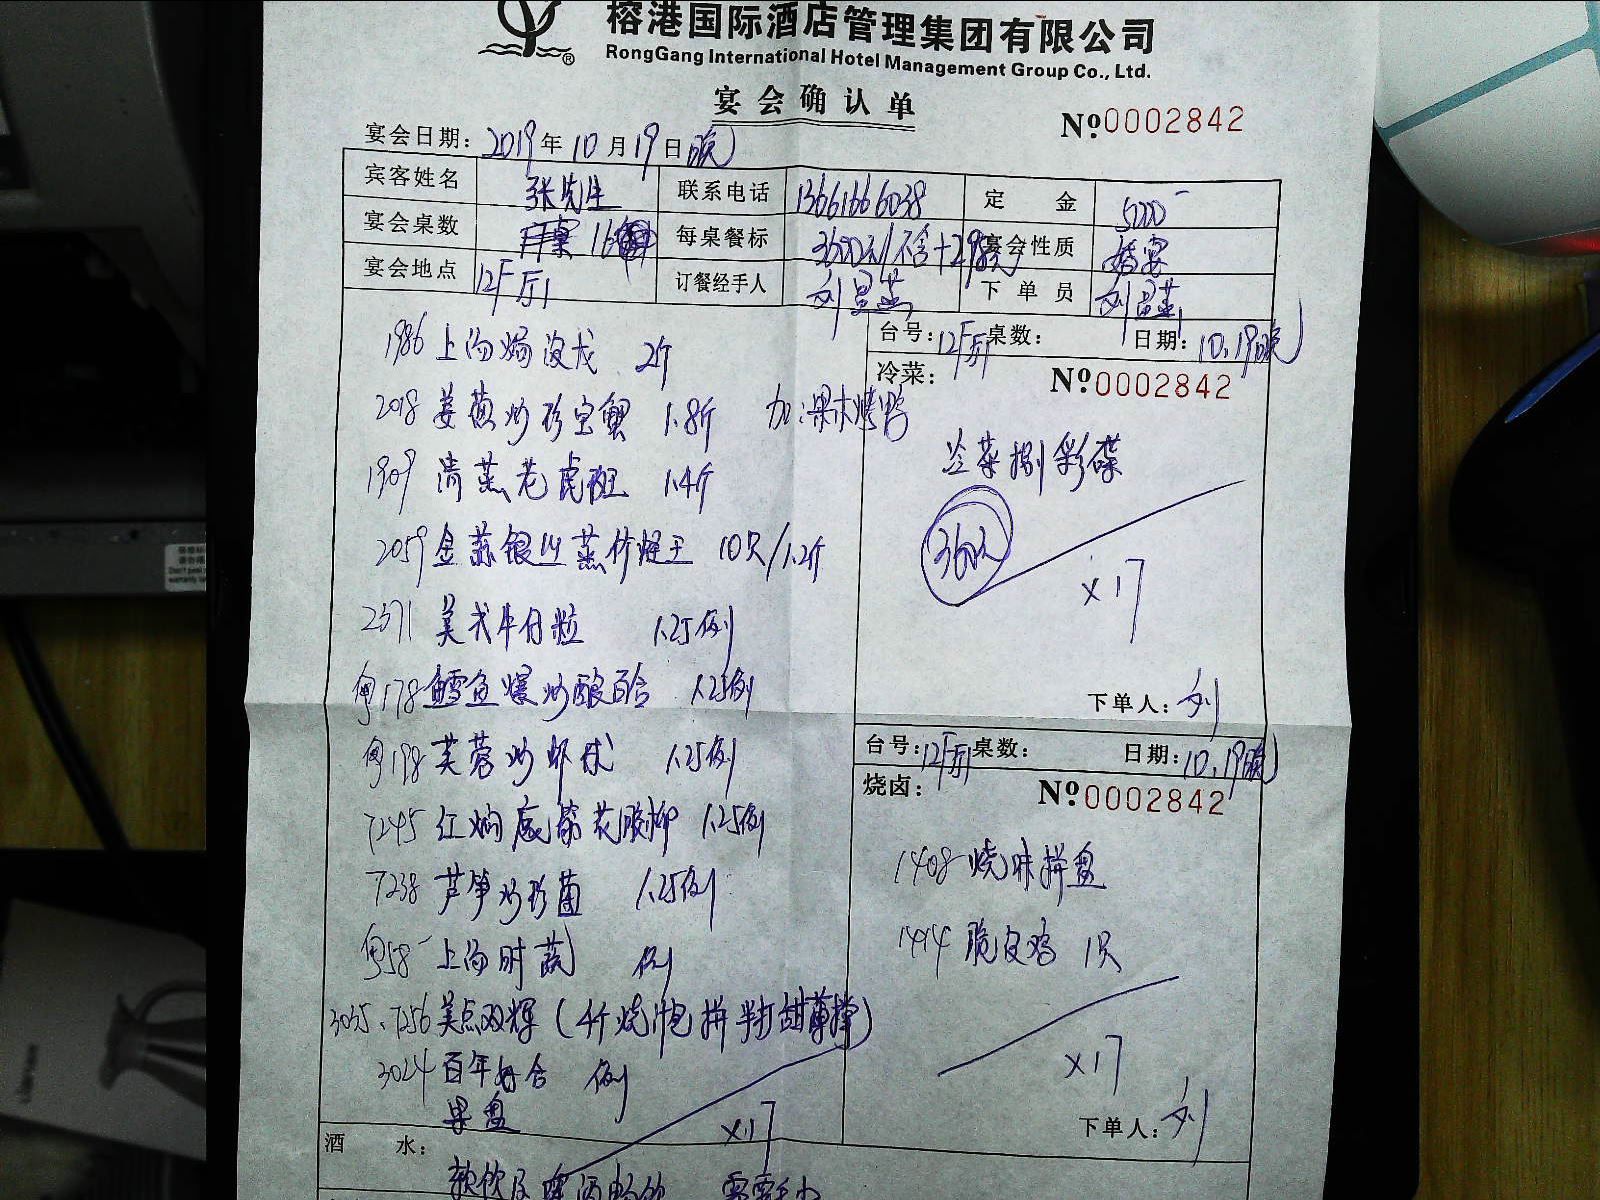 榕港国际酒店管理集团有限公司
RongGang International Hotel Management Group Co., Ltd.
宴会确认单
№ 0002842
宴会日期: 2019年10月19日(晚)
宾客姓名 张先生 联系电话 13661666038 定金 5000
宴会桌数 16 每桌餐标 3600元/不含 宴会性质 婚宴
宴会地点 12F厅1 订餐经手人 刘 下单员 刘
台号: 12F厅1 桌数: 日期: 10.19晚
冷菜: № 0002842
1986 上汤焗波龙 2斤
2018 姜葱炒珍宝蟹 1.8斤 加:果木烤鸭
1909 清蒸老虎斑 1.4斤
冷菜捌彩碟
2059 金蒜银丝蒸竹蛏王 10只/1.2斤
3600
x17
2371 美式牛仔粒 1.25例
粤178 鳕鱼爆炒酿百合 1.25例
下单人: 刘
粤198 芙蓉炒虾球 1.25例
台号: 12F厅1 桌数: 日期: 10.19晚
烧卤: № 0002842
7245 红焖 花胶柳 1.25例
1408 烧味拼盘
7238 芦笋炒珍菌 1.25例
1414 脆皮鸡 1只
粤58 上汤时蔬 例
3035、7256 美点双辉(
x17
3024 百年好合 例
果盘
x17
下单人: 刘
酒水:
软饮及啤酒畅饮